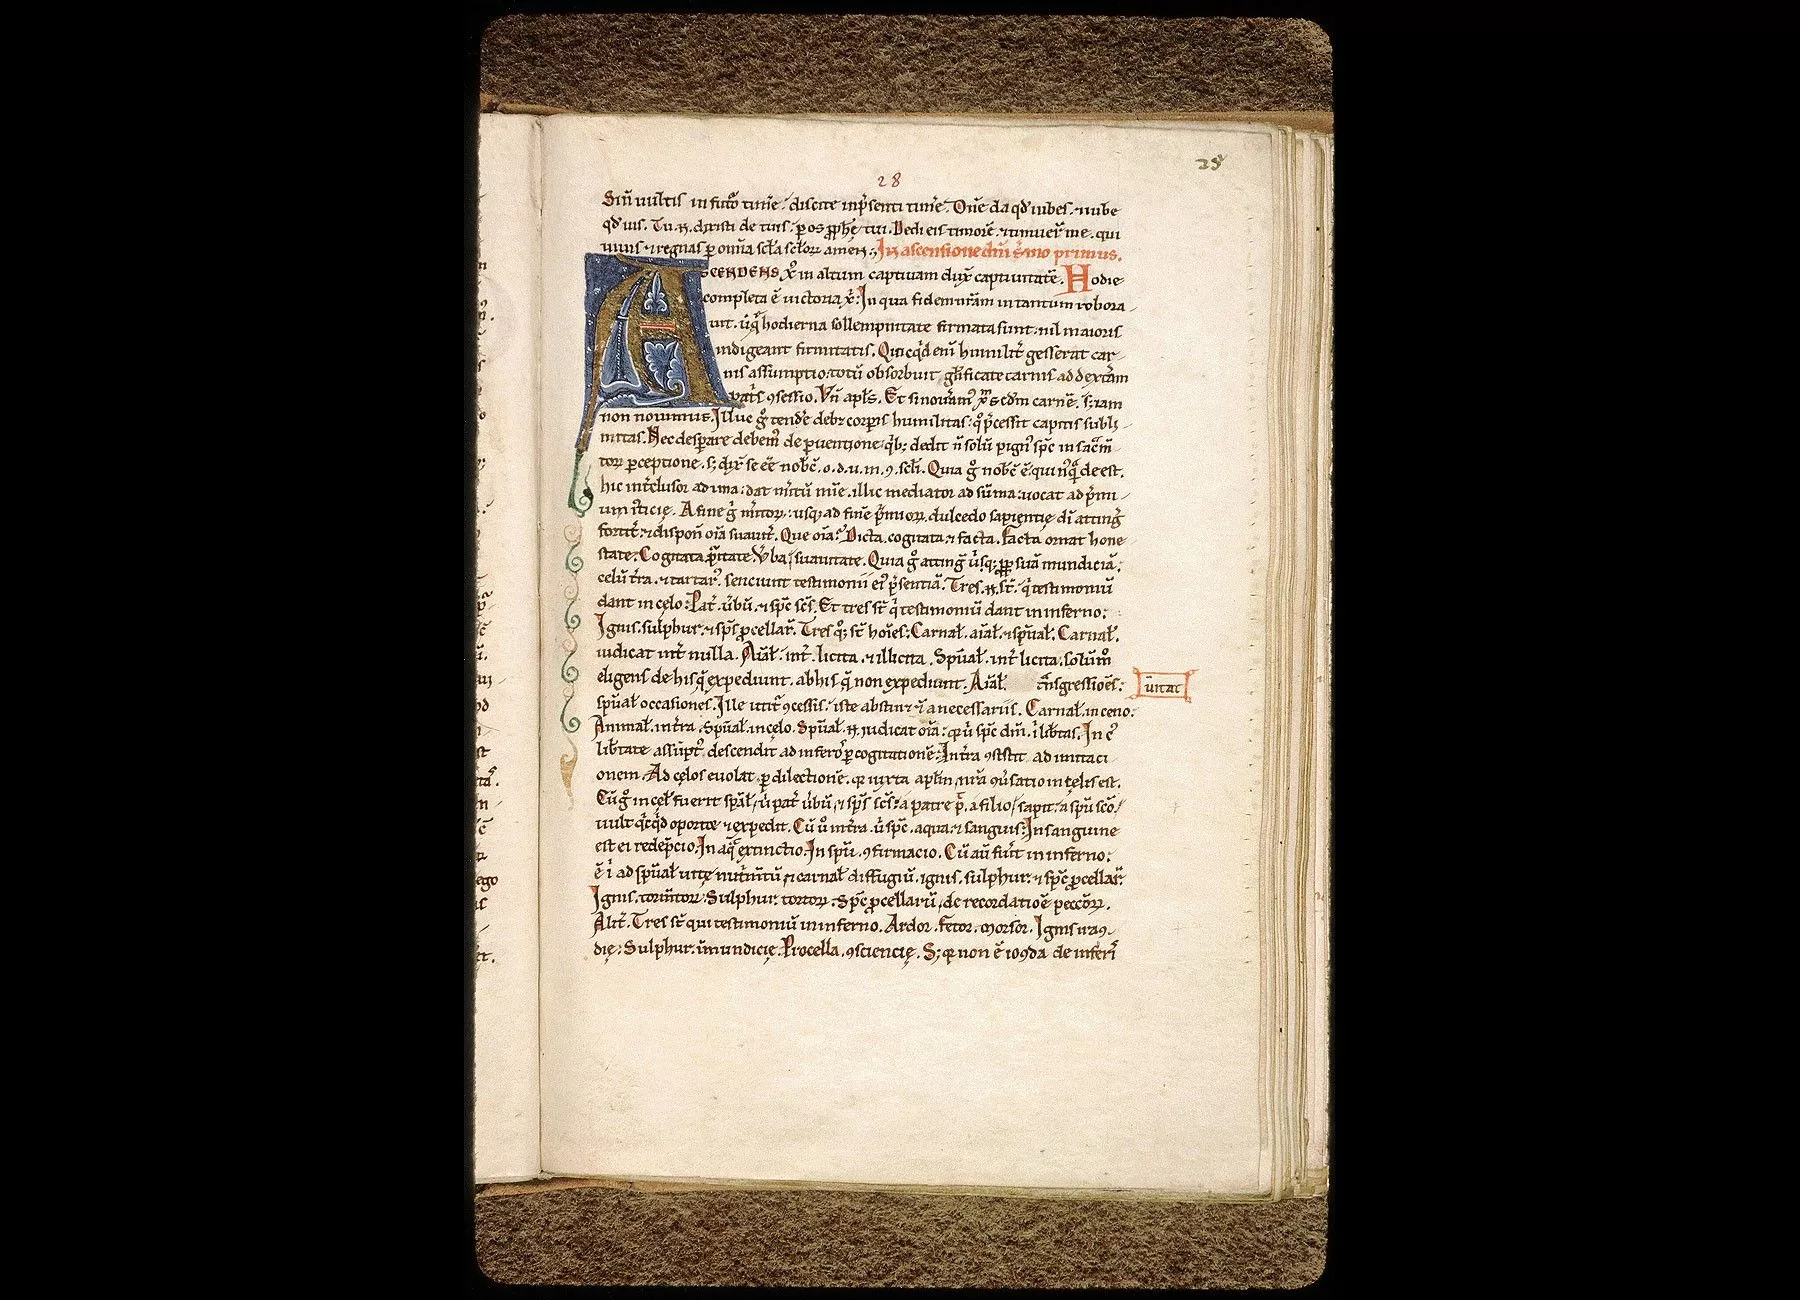 28
28
Sin̄ uultis in futo᷑ tim̄e, discite inp̄senti tim̄e. Dn̄e da qđ iubes, ⁊ iube
qđ uis. Tu .n. dixisti de tuis, p os ꝓph̨e tui. Dedi eis timorē, ⁊ timuer̄ me. qui
uiuis ⁊ regnas p om̄ia scl̄a scl̄oꝝ amen. In ascensione dn̄i s̄mo primus.
ASCENDENS xp̄c in altum captiuam dux̄ captiuitatē. Hodie
completa ē uictoria xp̄i. In qua fidem nr̄am in tantum robora
uit. ut q̄ hodierna sollempnitate firmata sunt, nil maioris
indigeant firmitatis. Quicqđ eni᷑ humilit̄ gesserat car-
nis assumptio, totū obsorbuit gl̄ificate carnis ad dext̄am
pat̄s ꝯsessio. Vn̄ apl̄s. Et si nouim᷒ xp̄m scđm carnē, s; iam
non nouimus. Illuc g̊ tend̄e deb; corp̄is humilitas, q̊ p̄cessit capitis subli-
mitas. Nec desp̄are debem᷒ de puentione, q̇b; dedit n̄ solū pign᷒ sp̄c in sac̄m̄
toꝝ pceptione, s; dix̄ se ēē nob̄c .o.d.u.m.ꝯ. scl̄i. Quia g̊ nob̄c ē, qui nūq̄ deest.
hic int̄clusor ad ima, dat m̄itū mīe, illic mediator ad sūma, uocat ad p̄mi-
um iūticie. A fine g̊ m̄itoꝝ, usq; ad finē p̄mioꝝ, dulcedo sapientie di᷑ atting̊
fortit̄, ⁊ dispon̄ oīa suauit̄. Que oīa? Dicta, cogitata, ⁊ facta. Facta ornat hone
state. Cogitata p̄itate. V̄ba suauitate. Quia g̊ atting̊ usq; ꝓp̄ suā mundiciā,
celū t̄ra, ⁊ tartar᷒ senciunt testimonii ei᷒ p̄sentiā. Tres .n. st̄ q̇ testimoniū
dant in celo, Pat̄, ūbū, ⁊ sp̄c sc̄s. Et tres st̄ q̇ testimoniū dant in inferno,
Ignis, sulphur, ⁊ sp̄s ꝓcellar̄. Tres q; st̄ hoi᷑es, Carnal̄, aīal̄, ⁊ sp̄ual̄. Carnal̄
iudicat int̄ nulla. Aīal̄ int̄ licita ⁊ illicita. Sp̄ual̄ int̄ licita, solum᷒
eligens de his q̄ expediunt, ab his q̄ non expediunt. Aīal̄ t̄nsgressiōes,
ūitat
sp̄ual̄ occasiones. Ille utit̄ ꝯcessis, iste abstin̄ ⁊ a necessariis. Carnal̄ in ceno,
Animal̄ in t̄ra, Sp̄ual̄ in celo. Sp̄ual̄ .n. iudicat oīa, q̄ u᷑ sp̄c dn̄i, i᷑ lib̄tas. In c᷒
lib̄tate assūpt᷒ descendit ad infero᷒ p cogitationē. In t̄ra ꝯsistit ad imitaci
onem. Ad celos euolat p dilectionē. q̄ iuxta apl̄m, nr̄a ꝯūsatio in celis est.
Cū g̊ in cel̄ fuerit sp̄al̄, u᷑ pat̄ ūbū, ⁊ sp̄s sc̄s, a patre p̄, a filio sapit, a sp̄u sc̄o
uult q̇cq̇d oportet ⁊ expedit. Cū u᷒ in t̄ra, u᷑ sp̄c, aqua, ⁊ sanguis, In sanguine
est ei redēpcio. In aq̄ extinctio. In sp̄u, ꝯfirmacio. Cū au᷑ fuīt in inferno,
ē i᷑ ad sp̄ual̄ uite nut̄m̄tū, ⁊ carnal̄ diffugiū, ignis, sulphur, ⁊ sp̄c ꝓcellar̄.
Ignis, torm̄toꝝ. Sulphur, tortoꝝ. Sp̄c ꝓcellarū, de recordatiōe peccōꝝ.
Alit̄. Tres st̄ qui testimoniū in inferno. Ardor, Fetor, Morsor. Ignis iracꝯ-
die, Sulphur, īmundicie, Procella, ꝯsciencie. S; q̄ non ē iocꝯda de inferi